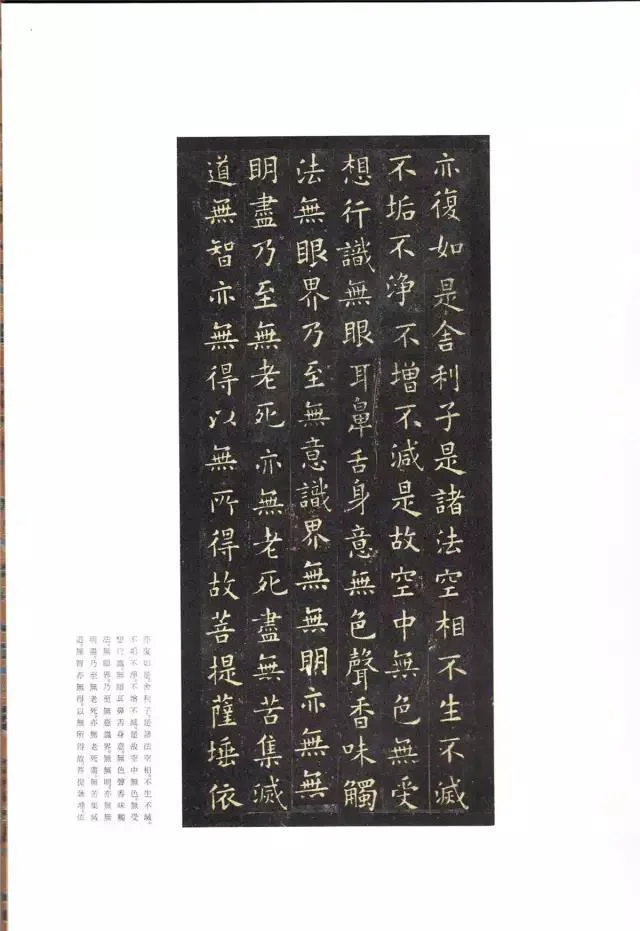 亦復如是舍利子是諸法空相不生不滅
不垢不净不增不減是故空中無色無受
想行識無眼耳鼻舌身意無色聲香味觸
法無眼界乃至無意識界無無明亦無無
明盡乃至無老死亦無老死盡無苦集滅
道無智亦無得以無所得故菩提薩埵依
亦復如是。舍利子，是諸法空相，不生不滅，
不垢不淨，不增不減。是故空中無色，無受
想行識，無眼耳鼻舌身意，無色聲香味觸
法，無眼界，乃至無意識界。無無明，亦無無
明盡，乃至無老死，亦無老死盡。無苦集滅
道，無智亦無得。以無所得故，菩提薩埵，依